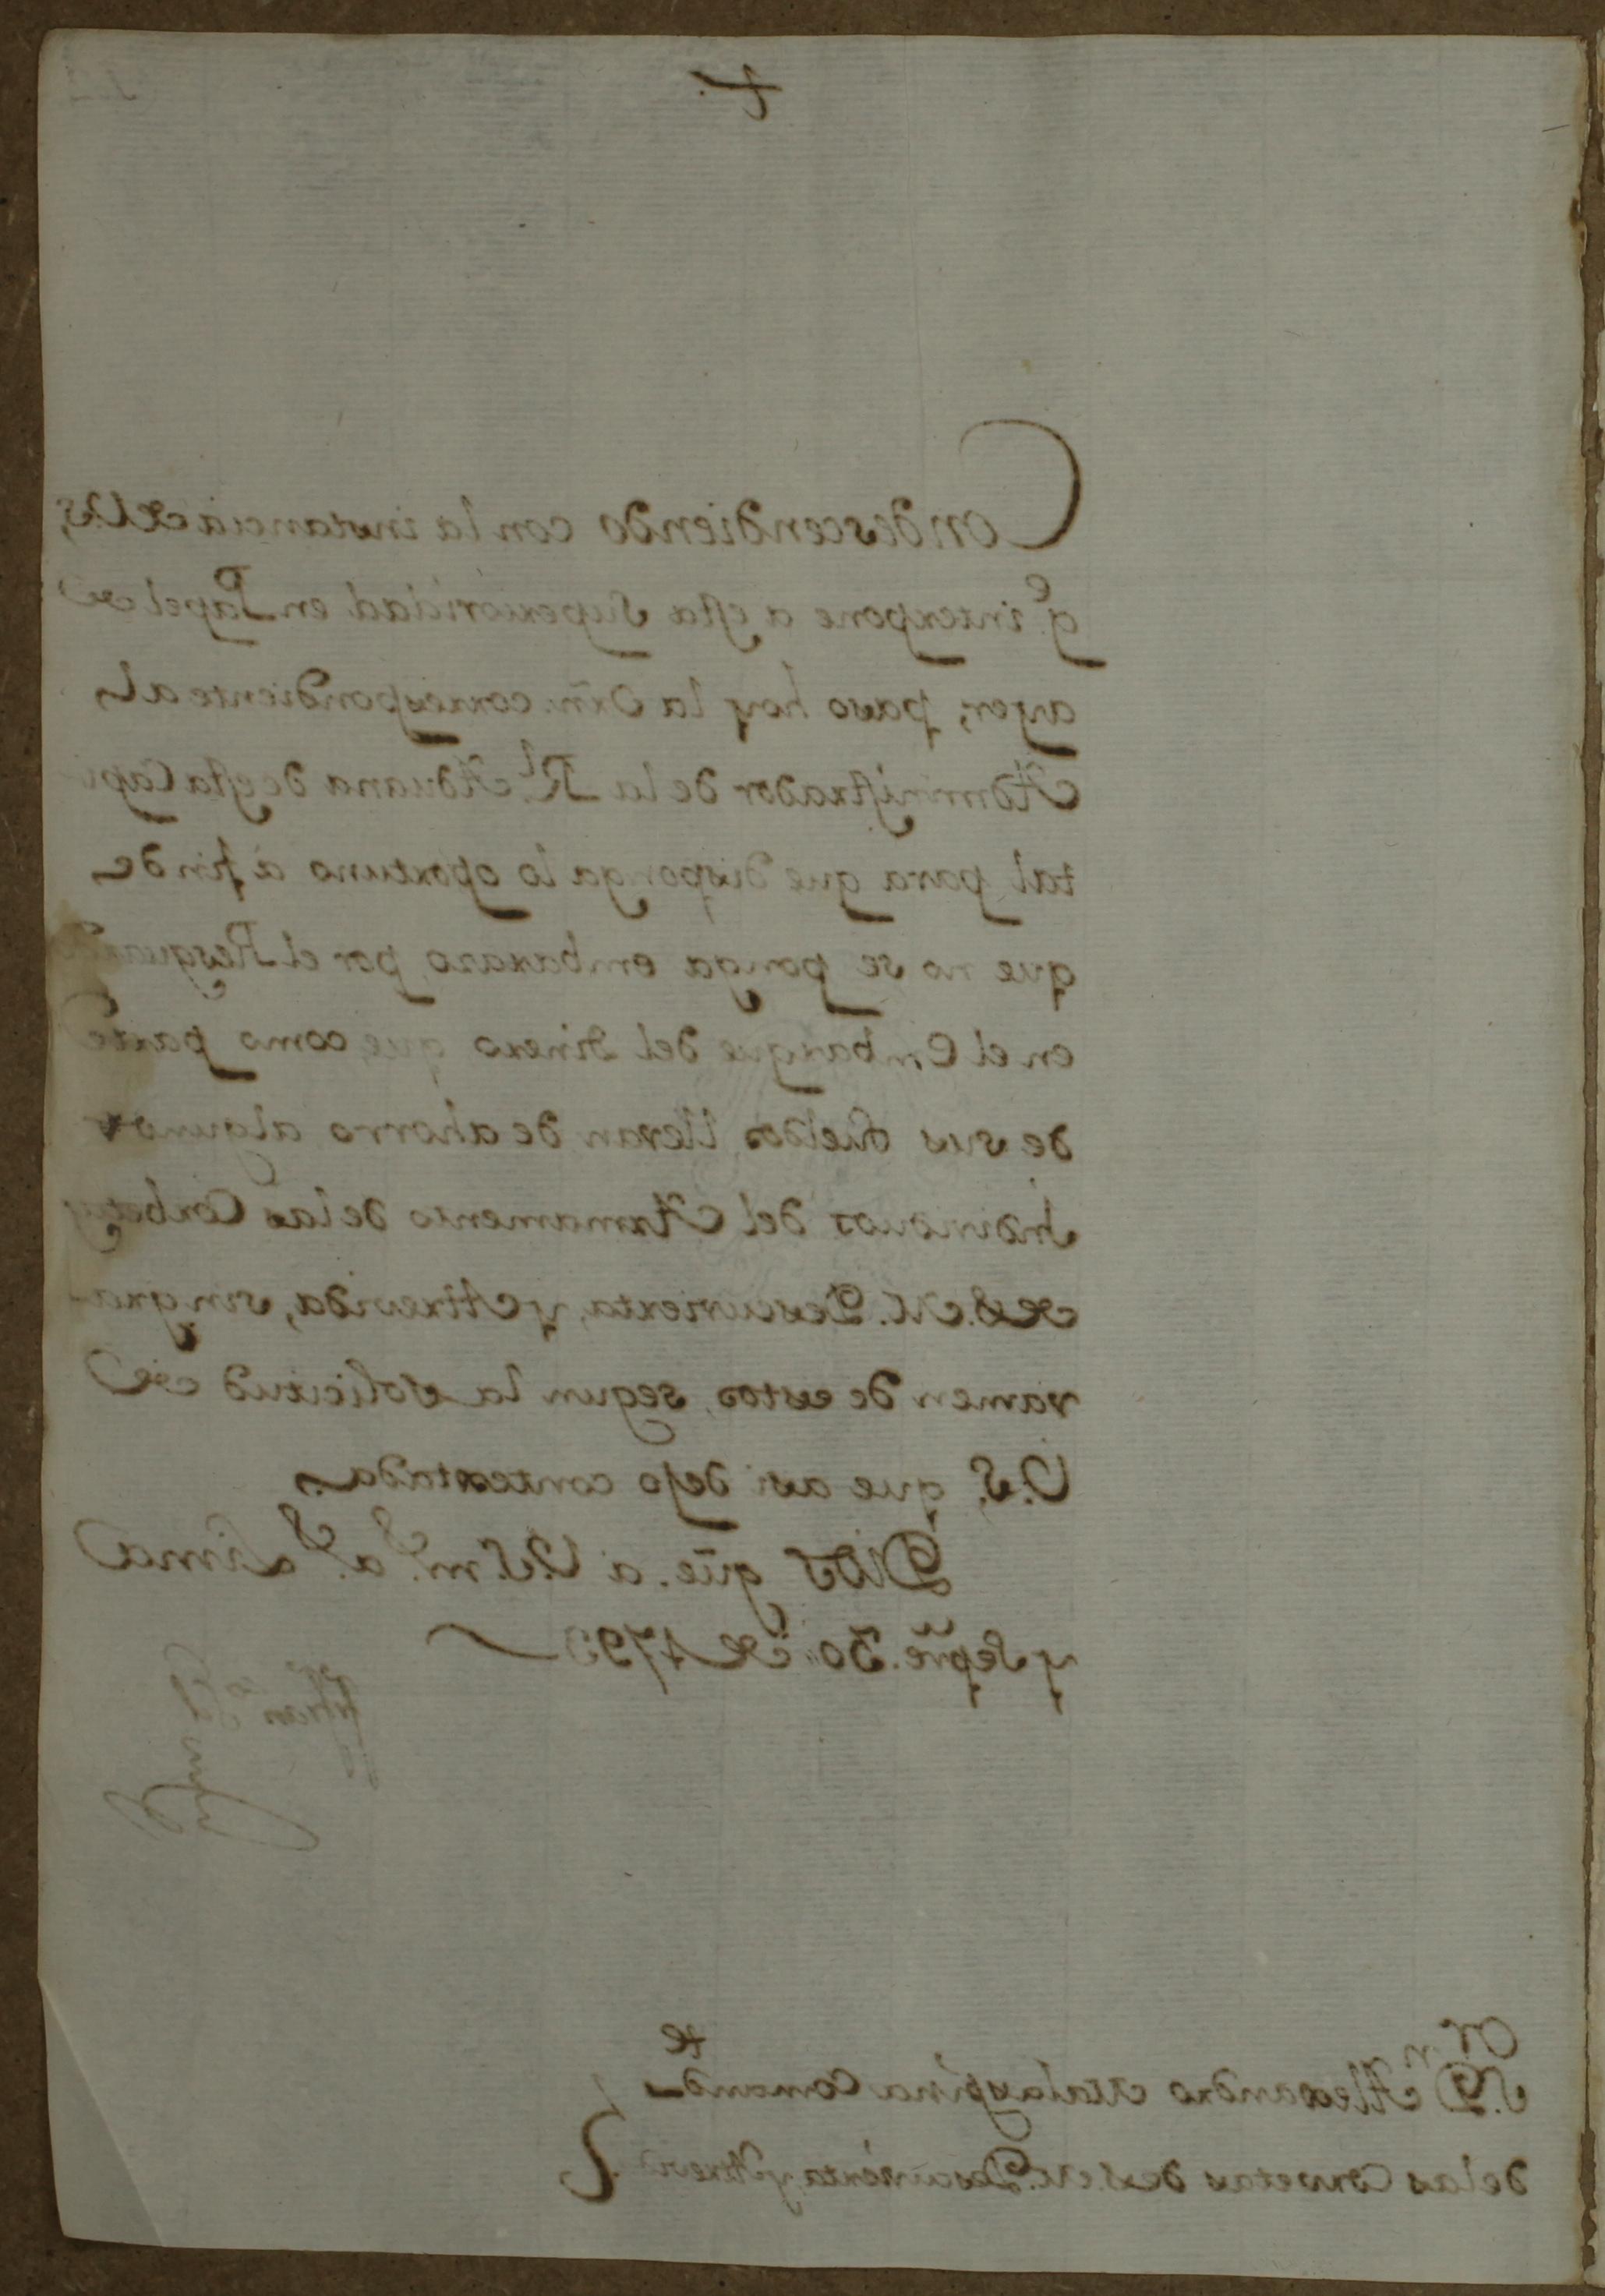 +
Condescendiendo con la instancia de V.S.,
q.e interpone a esta Superioridad en Papel de
ayer, paso hoy la Orñ. correspondiente al
Administrador de la R.l Aduana de esta Capi-
tal para que disponga lo oportuno á fin de
que no se ponga embarazo por el Resguardo
en el Embarque del dinero que como parte
de sus sueldos llevan de ahorro algunos
Individuos del Armamento de las Corbetas
de S.M. Descubierta, y Atrevida, sin gra-
vamen de estos, segun la solicitud de
V.S. que asi dejo contextada.
Dios gũe. á V.S. m.s a.s Lima
y Sepr̃e. 30 de 1793
S.r D.n Alexandro Malaspina Comand.te
de las Corvetas de S.M. Descubierta y Atrevida.